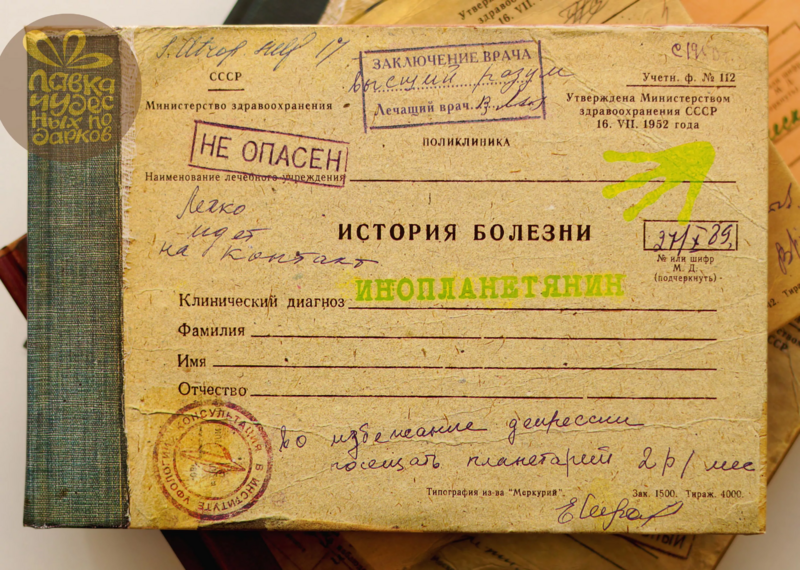 Лавка
чудес
ных по
дарков
СССР
Министерство здравоохранения
ЗАКЛЮЧЕНИЕ ВРАЧА
высший разум
Лечащий врач.
Учетн. ф. № 112
Утверждена Министерством
здравоохранения СССР
16. VII. 1952 года
ПОЛИКЛИНИКА
НЕ ОПАСЕН
Наименование лечебного учреждения
Легко
идет
на контакт
ИСТОРИЯ БОЛЕЗНИ
27/X 89
№ или шифр
М. Д.
(подчеркнуть)
Клинический диагноз ИНОПЛАНЕТЯНИН
Фамилия
Имя
Отчество
КОНСУЛЬТАЦИЯ В ИНСТИТУТЕ УФОЛОГИИ
Во избежание депрессии
посещать планетарий 2 р/мес
Типография из-ва "Меркурий" Зак. 1500. Тираж. 4000.